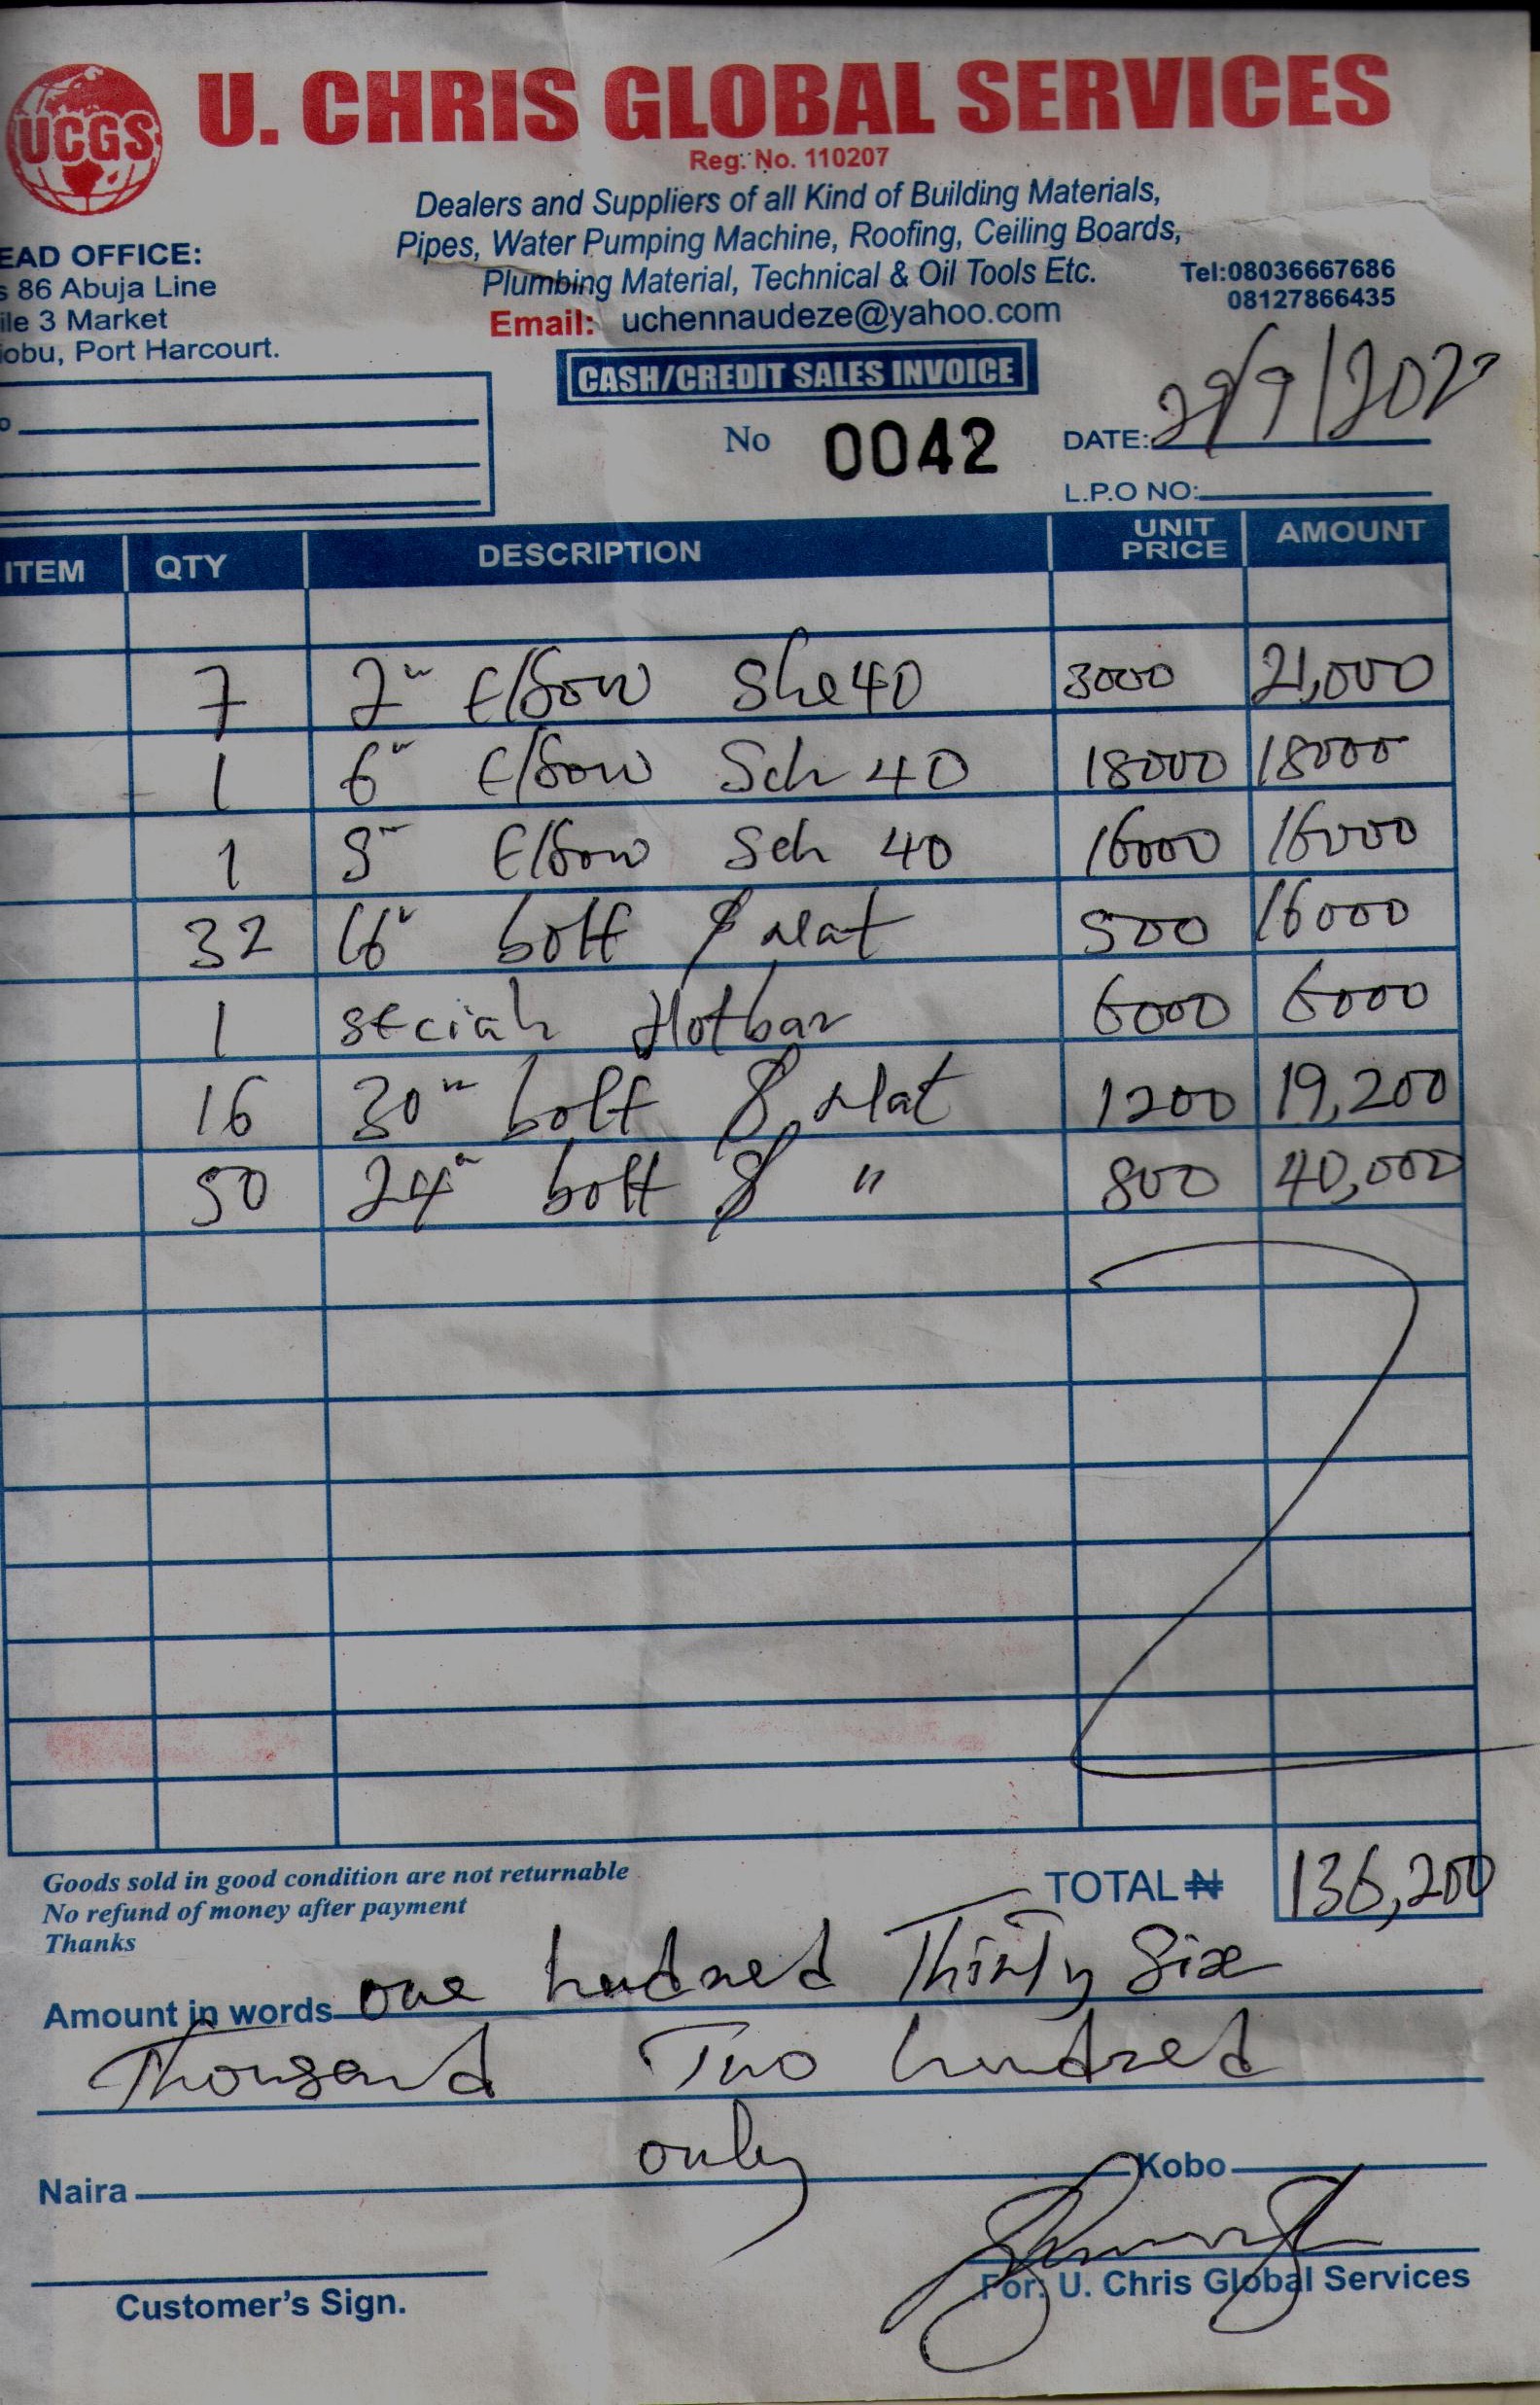 UCGS
U. CHRIS GLOBAL SERVICES
Reg. No. 110207
Dealers and Suppliers of all Kind of Building Materials,
Pipes, Water Pumping Machine, Roofing, Ceiling Boards,
Plumbing Material, Technical & Oil Tools Etc.
Email: uchennaudeze@yahoo.com
EAD OFFICE:
s 86 Abuja Line
ile 3 Market
iobu, Port Harcourt.
Tel:08036667686
08127866435
CASH/CREDIT SALES INVOICE
No 0042
DATE: 29/9/202
L.P.O NO:
ITEM QTY DESCRIPTION UNIT PRICE AMOUNT
7 2" Elbow She 40 3000 21,000
1 6" Elbow Sch 40 18000 18000
1 5" Elbow Sch 40 16000 16000
32 16" bolt & Nat 500 16000
1 6000 6000
16 30" bolt & Nat 1200 19,200
50 24" bolt & " 800 40,000
Goods sold in good condition are not returnable
No refund of money after payment
Thanks
TOTAL ₦ 136,200
Amount in words one hundred Thirty Six
Thousand Two hundred
only
Naira Kobo
Customer's Sign.
For: U. Chris Global Services